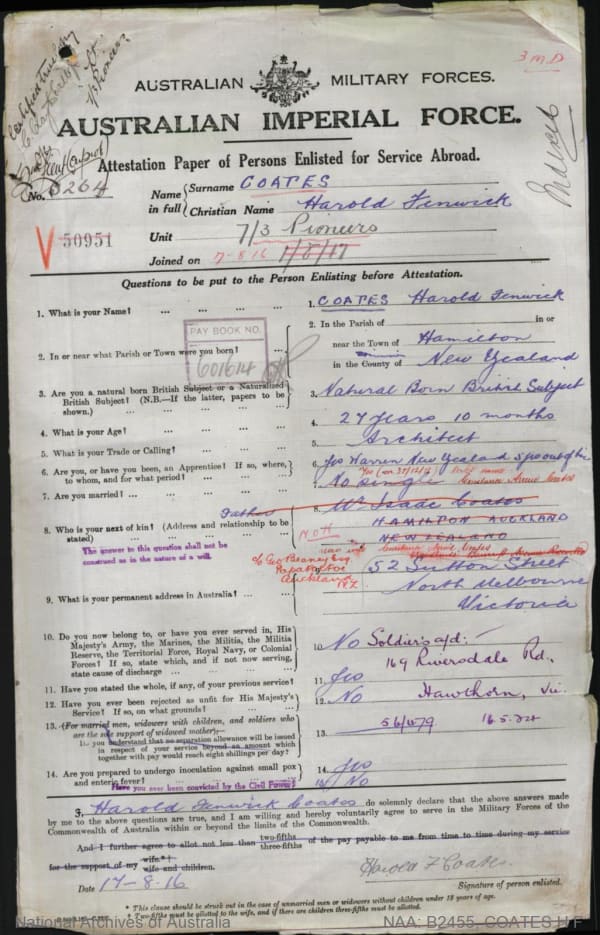 Certified true copy
7/3 Pioneers
3 M D
AUSTRALIAN MILITARY FORCES.
AUSTRALIAN IMPERIAL FORCE.
Attestation Paper of Persons Enlisted for Service Abroad.
No. 6264
Name in full { Surname COATES
Christian Name Harold Fenwick
V 50951
Unit 7/3 Pioneers
Joined on 7-8-16 1/5/17
Questions to be put to the Person Enlisting before Attestation.
1. What is your Name? ... ... ... ... 1. COATES Harold Fenwick
2. In or near what Parish or Town were you born? ... 2. In the Parish of in or
near the Town of Hamilton
in the County of New Zealand
PAY BOOK NO.
601614
3. Are you a natural born British Subject or a Naturalized British Subject? (N.B.—If the latter, papers to be shown.) ... 3. Natural Born British Subject
4. What is your Age? ... ... ... 4. 27 years 10 months
5. What is your Trade or Calling? ... ... 5. Architect
6. Are you, or have you been, an Apprentice? If so, where, to whom, and for what period? ... ... 6. Yes Warren New Zealand
7. Are you married? ... ... ... ... 7. No Single
8. Who is your next of kin? (Address and relationship to be stated) ... ... 8. Mr Isaac Coates
Father
HAMILTON AUCKLAND
NEW ZEALAND
NOK
The answer to this question shall not be
construed as in the nature of a will.
Papatoetoe
Auckland NZ
9. What is your permanent address in Australia? ... ... 52 Sutton Street
North Melbourne
Victoria
10. Do you now belong to, or have you ever served in, His Majesty's Army, the Marines, the Militia, the Militia Reserve, the Territorial Force, Royal Navy, or Colonial Forces? If so, state which, and if not now serving, state cause of discharge ... ... 10. No
Soldier's a/d:-
169 Riversdale Rd,
Hawthorn, Vic.
11. Have you stated the whole, if any, of your previous service? 11. Yes
12. Have you ever been rejected as unfit for His Majesty's Service? If so, on what grounds? ... ... 12. No
13. (For married men, widowers with children, and soldiers who are the sole support of widowed mother)—
Do you understand that no separation allowance will be issued in respect of your service beyond an amount which together with pay would reach eight shillings per day? 13.
16.5.24
14. Are you prepared to undergo inoculation against small pox and enteric fever? ... ... 14. Yes
Have you ever been convicted by the Civil Power? 15 No
I, Harold Fenwick Coates do solemnly declare that the above answers made
by me to the above questions are true, and I am willing and hereby voluntarily agree to serve in the Military Forces of the
Commonwealth of Australia within or beyond the limits of the Commonwealth.
And I further agree to allot not less than two-fifths three-fifths of the pay payable to me from time to time during my service
for the support of my wife.*† wife and children.
Harold F Coates.
Date 17-8-16
Signature of person enlisted.
* This clause should be struck out in the case of unmarried men or widowers without children under 18 years of age.
† Two-fifths must be allotted to the wife, and if there are children three-fifths must be allotted.
National Archives of Australia
NAA: B2455, COATES H F